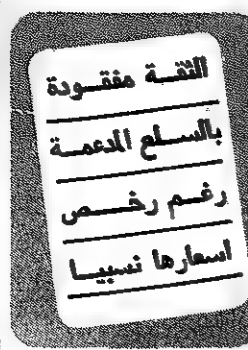 الثقة مفقودة
بالسلع المدعمة
رغم رخص
اسعارها نسبيا